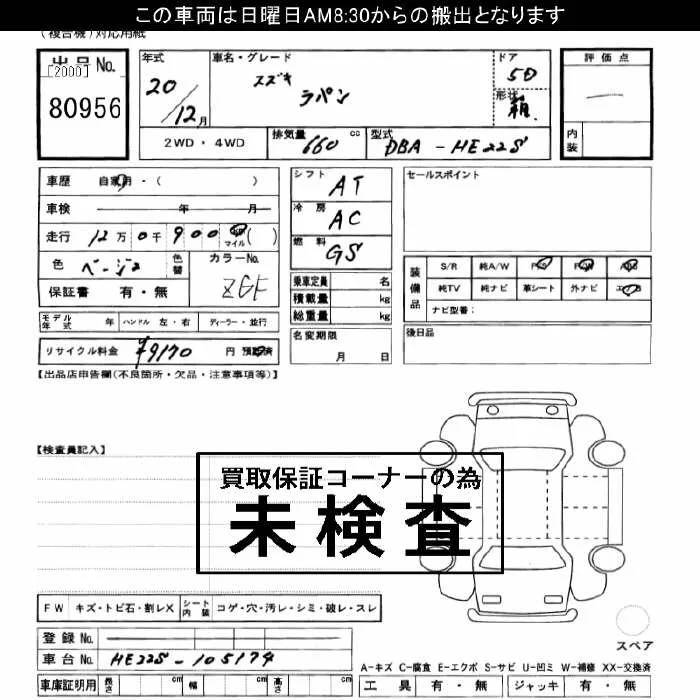 この車両は日曜日AM8:30からの搬出となります
(複合機)対応用紙
出品No.
[2000]
80956
年式
20/12月
車名・グレード
スズキ
ラパン
ドア
5D
形状
箱
評価点
—
内装
2WD・4WD
排気量 660 cc
型式 DBA-HE22S
車歴 自家用・( )
車検 年 月
走行 12万0千900 km マイル ( )
色 ベージュ 色替 カラーNo. ZGF
保証書 有・無
シフト AT
冷房 AC
燃料 GS
乗車定員 名
積載量 kg
総重量 kg
セールスポイント
装備品
S/R 純A/W P/S P/W A/B
純TV 純ナビ 革シート 外ナビ エアB
ナビ型番:
モデル年式 年 ハンドル 左・右 ディーラー・並行
名変期限
月 日
後日品
リサイクル料金 ¥9170 円 預託済
【出品店申告欄(不良箇所・欠品・注意事項等)】
【検査員記入】
買取保証コーナーの為
未検査
FW キズ・トビ石・割レX シート内装 コゲ・穴・汚レ・シミ・破レ・スレ
登録No.
車台No. HE22S-105174
スペア
A-キズ C-腐食 E-エクボ S-サビ U-凹ミ W-補修 XX-交換済
車庫証明用 長さ cm 幅 cm 高さ cm
工具 有・無 ジャッキ 有・無